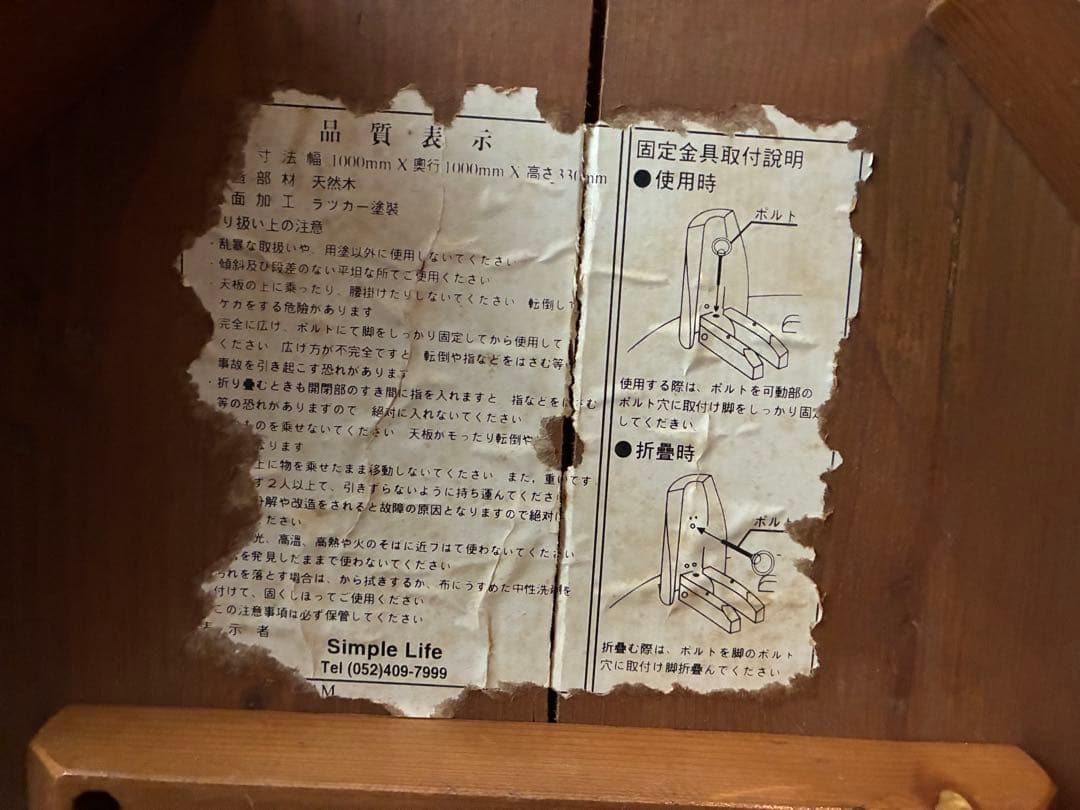 品質表示
寸法 幅 1000mm X 奥行 1000mm X 高さ 330mm
部材 天然木
面加工 ラッカー塗装
り扱い上の注意
・乱暴な取扱いや、用塗以外に使用しないてください
・傾斜及び段差のない平坦な所でご使用ください
・天板の上に乗ったり、腰掛けたりしないてください 転倒して
ケカをする危険があります
完全に広げ、ボルトにて脚をしっかり固定してから使用して
ください 広げ方が不完全ですと 転倒や指などをはさむ等
事故を引き起こす恐れがあります
・折り畳むときも開閉部のすき間に指を入れますと 指などをはさむ
等の恐れがありますので 絶対に入れないてください
ものを乗せないてください 天板がモったり転倒や
なります
上に物を乗せたまま移動しないてください また、重いです
ず2人以上て、引きずらないように持ち運んてください
分解や改造をされると故障の原因となりますので絶対に
ださい
光、高温、高熱や火のそばに近づけて使わないてください
を発見したままて使わないてください
れを落とす場合は、から拭きするか、布にうすめた中性洗剤を
付けて、固くしぼってご使用ください
この注意事項は必ず保管してください
示者
Simple Life
Tel (052)409-7999
M
固定金具取付説明
●使用時
ボルト
使用する際は、ボルトを可動部の
ボルト穴に取付け脚をしっかり固定
してください
●折畳時
ボルト
折畳む際は、ボルトを脚のボルト
穴に取付け脚折畳んてください